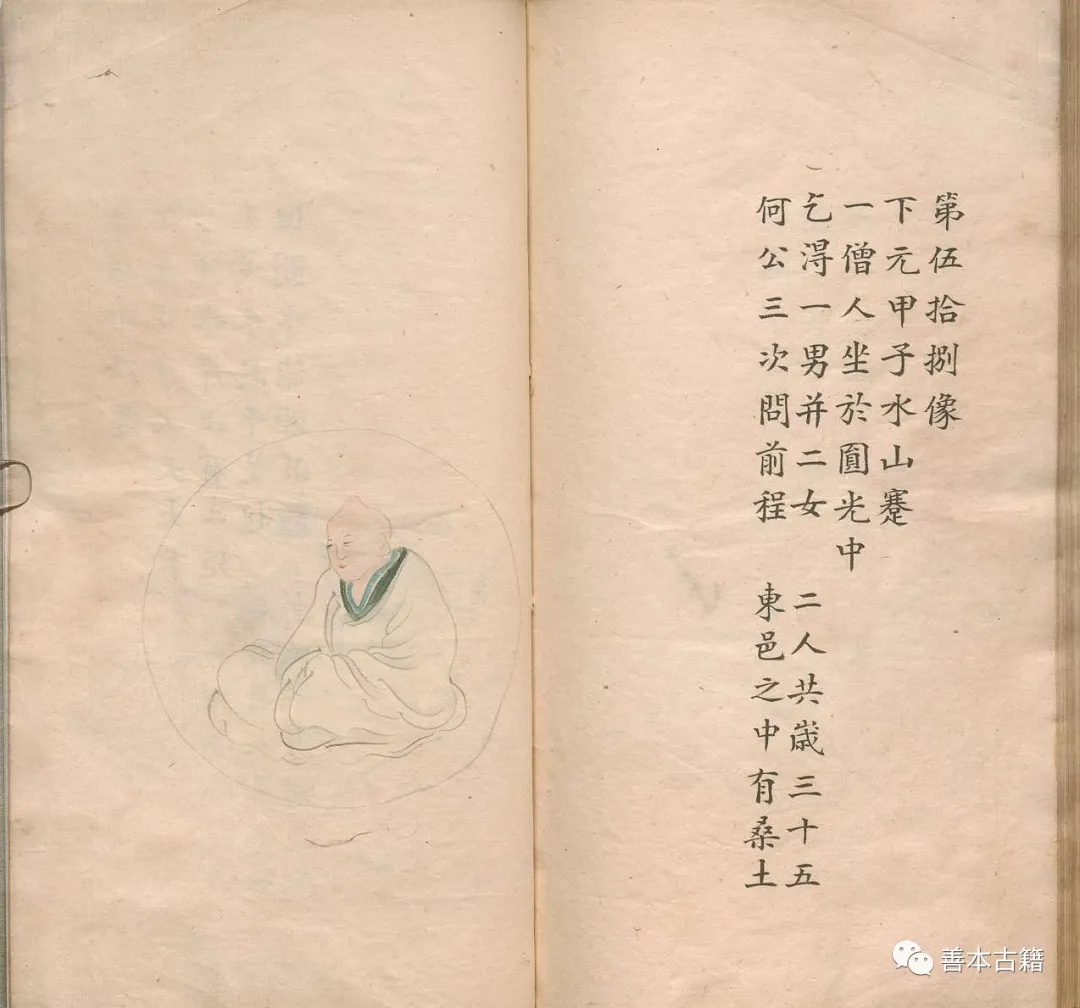 第伍拾捌像
下元甲子水山蹇
一僧人坐於圓光中
乞淂一男并二女　二人共歳三十五
何公三次問前程　東邑之中有桑土
善本古籍